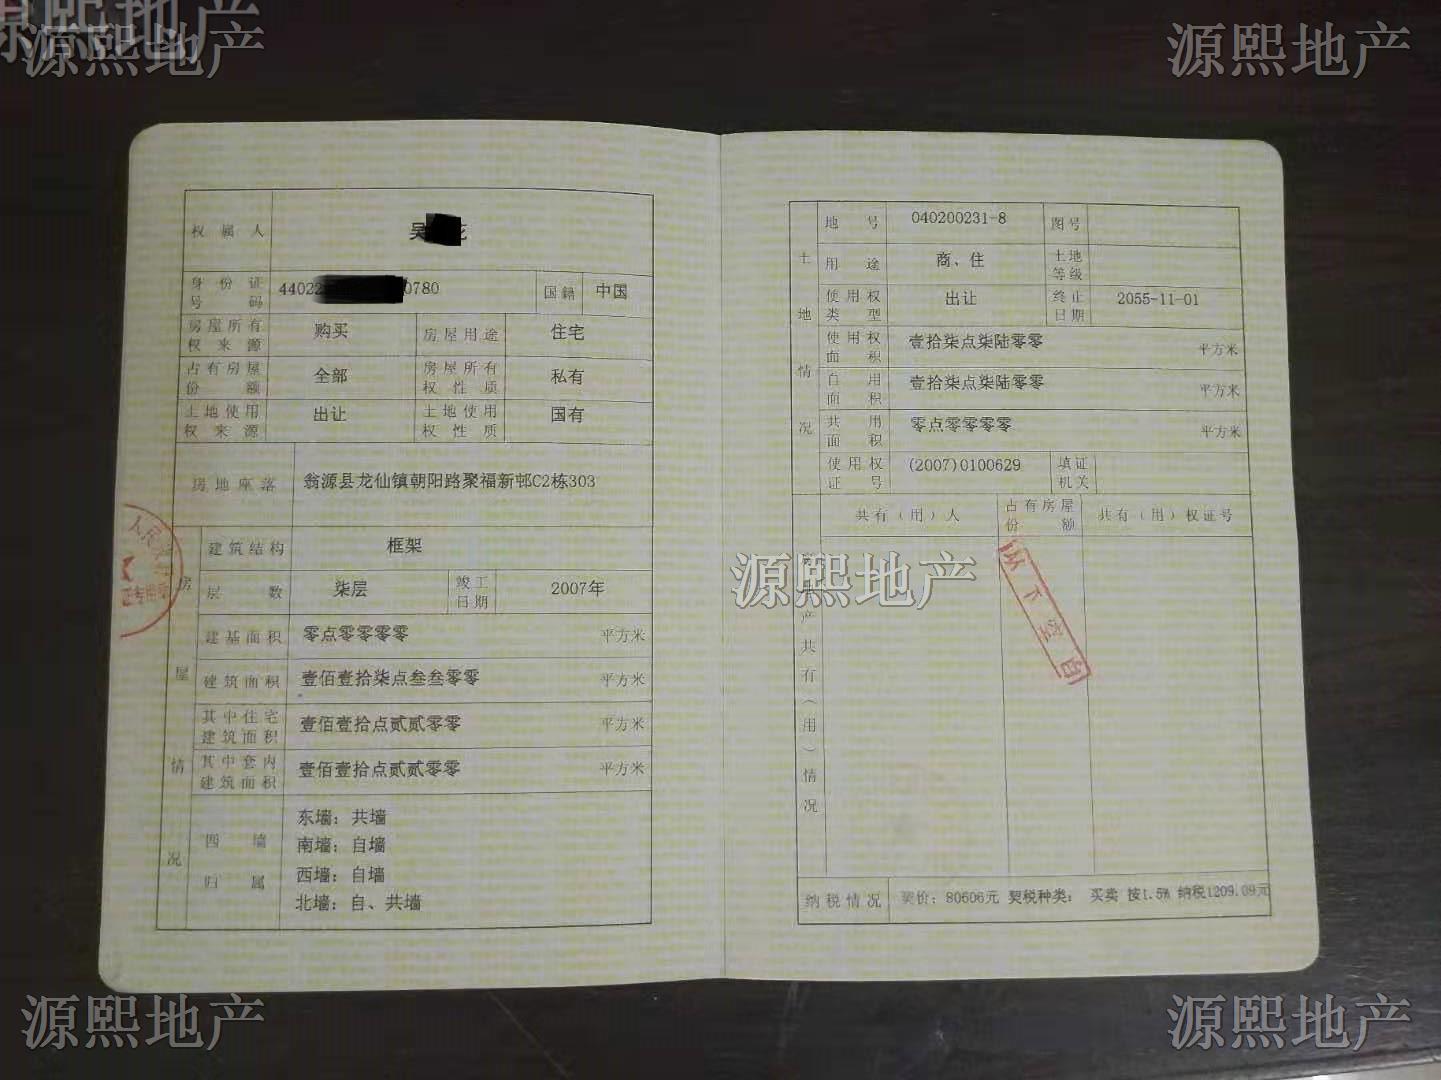 源熙地产
源熙地产
源熙地产
权属人 吴 花
身份证号码 44022 0780 国籍 中国
房屋所有权来源 购买 房屋用途 住宅
占有房屋份额 全部 房屋所有权性质 私有
土地使用权来源 出让 土地使用权性质 国有
房地座落 翁源县龙仙镇朝阳路聚福新邨C2栋303
房屋情况
建筑结构 框架
层数 柒层 竣工日期 2007年
建基面积 零点零零零零 平方米
建筑面积 壹佰壹拾柒点叁叁零零 平方米
其中住宅建筑面积 壹佰壹拾点贰贰零零 平方米
其中套内建筑面积 壹佰壹拾点贰贰零零 平方米
四墙归属
东墙：共墙
南墙：自墙
西墙：自墙
北墙：自、共墙
人民政府
证专用章
土地情况
地号 040200231-8 图号
用途 商、住 土地等级
使用权类型 出让 终止日期 2055-11-01
使用权面积 壹拾柒点柒陆零零 平方米
自用面积 壹拾柒点柒陆零零 平方米
共用面积 零点零零零零 平方米
使用权证号 (2007)0100629 填证机关
共有（用）人 占有房屋份额 共有（用）权证号
产共有（用）情况
以下空白
源熙地产
纳税情况 契价：80606元 契税种类： 买卖 按1.5% 纳税1209.09元
源熙地产
源熙地产